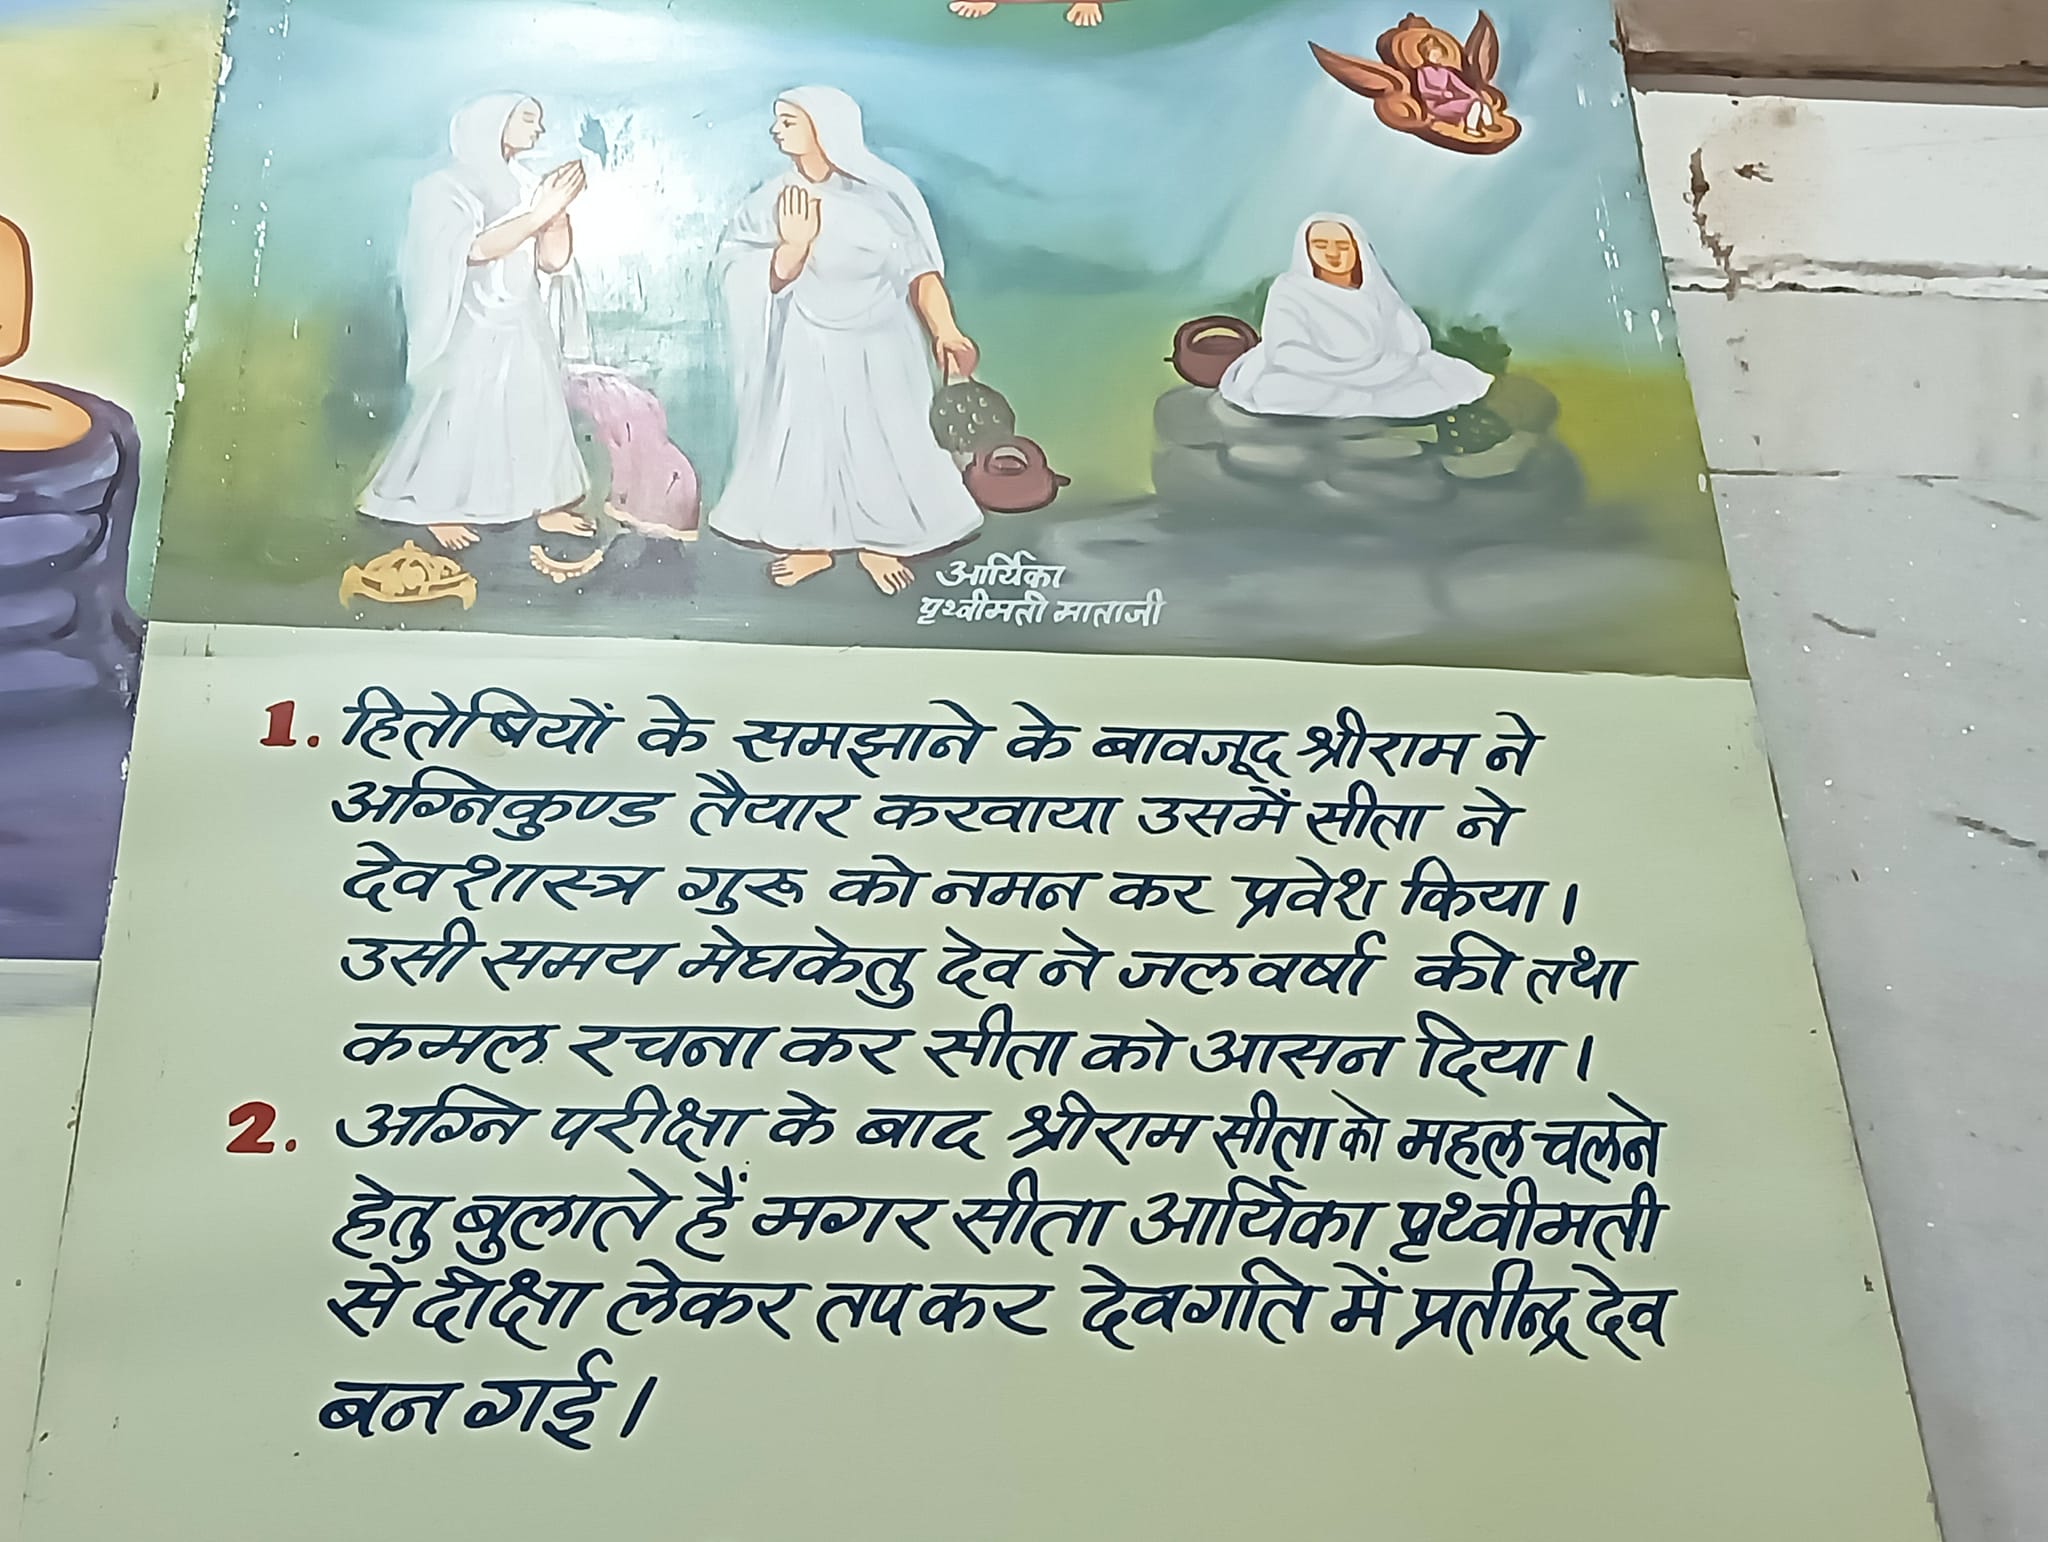 आर्यिका
पृथ्वीमती माताजी
1. हितेषियों के समझाने के बावजूद श्रीराम ने
अग्निकुण्ड तैयार करवाया उसमें सीता ने
देवशास्त्र गुरू को नमन कर प्रवेश किया।
उसी समय मेघकेतु देव ने जलवर्षा की तथा
कमल रचना कर सीता को आसन दिया।
2. अग्नि परीक्षा के बाद श्रीराम सीता को महल चलने
हेतु बुलाते हैं मगर सीता आर्यिका पृथ्वीमती
से दीक्षा लेकर तपकर देवगति में प्रतीन्द्र देव
बन गई।